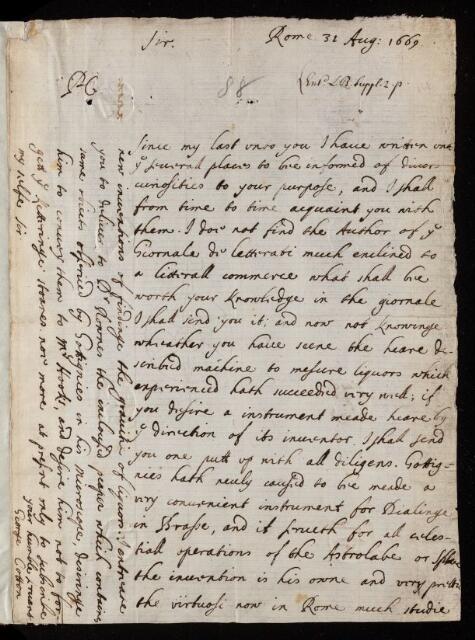 Sir.
Rome 31 Aug: 1669
88
(Entd LB Suppl. 2 p.
Since my last unto you I have written unto
ye severall places to be informed of divers
curiosities to your purpose, and I shall
from time to time acquaint you with
them. I doe not find the Author of ye
Giornale de letterati much enclined to
a litterall commerce what shall be
worth your knowledge in the giornale
I shall send you it; and now not knowinge
wheather you have seene the heare de-
scribed machine to mesure liquors which
experienced hath succeeded very well; if
you desire a instrument meade heare by
ye direction of its inventor I shall send
you one putt up with all diligens. Gottig-
nies hath newly caused to be meade a
very convenient instrument for Dialinge
in Brasse, and it serveth for all celes-
tiall operations of the Astrolabe or Sphere
the invention is his owne and very prettie
the virtuosi now in Rome much studie
new inventions of findinge the gravitie of liquors. I entreate
you to deliver to Dr the enclosed peaper which containes
some observed by Gottignies in his microscope, desiringe
him to convey them to Mr Hooke, and desire him not to for-
gett ye letteringe stones nor more at present only to subscribe
my selfe Sir
your humble servant
George Cotton